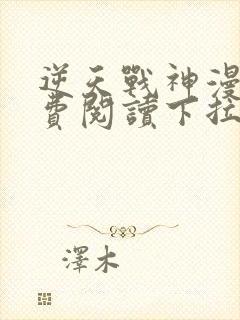 逆天戰神漫
費閱讀下拉
澤木